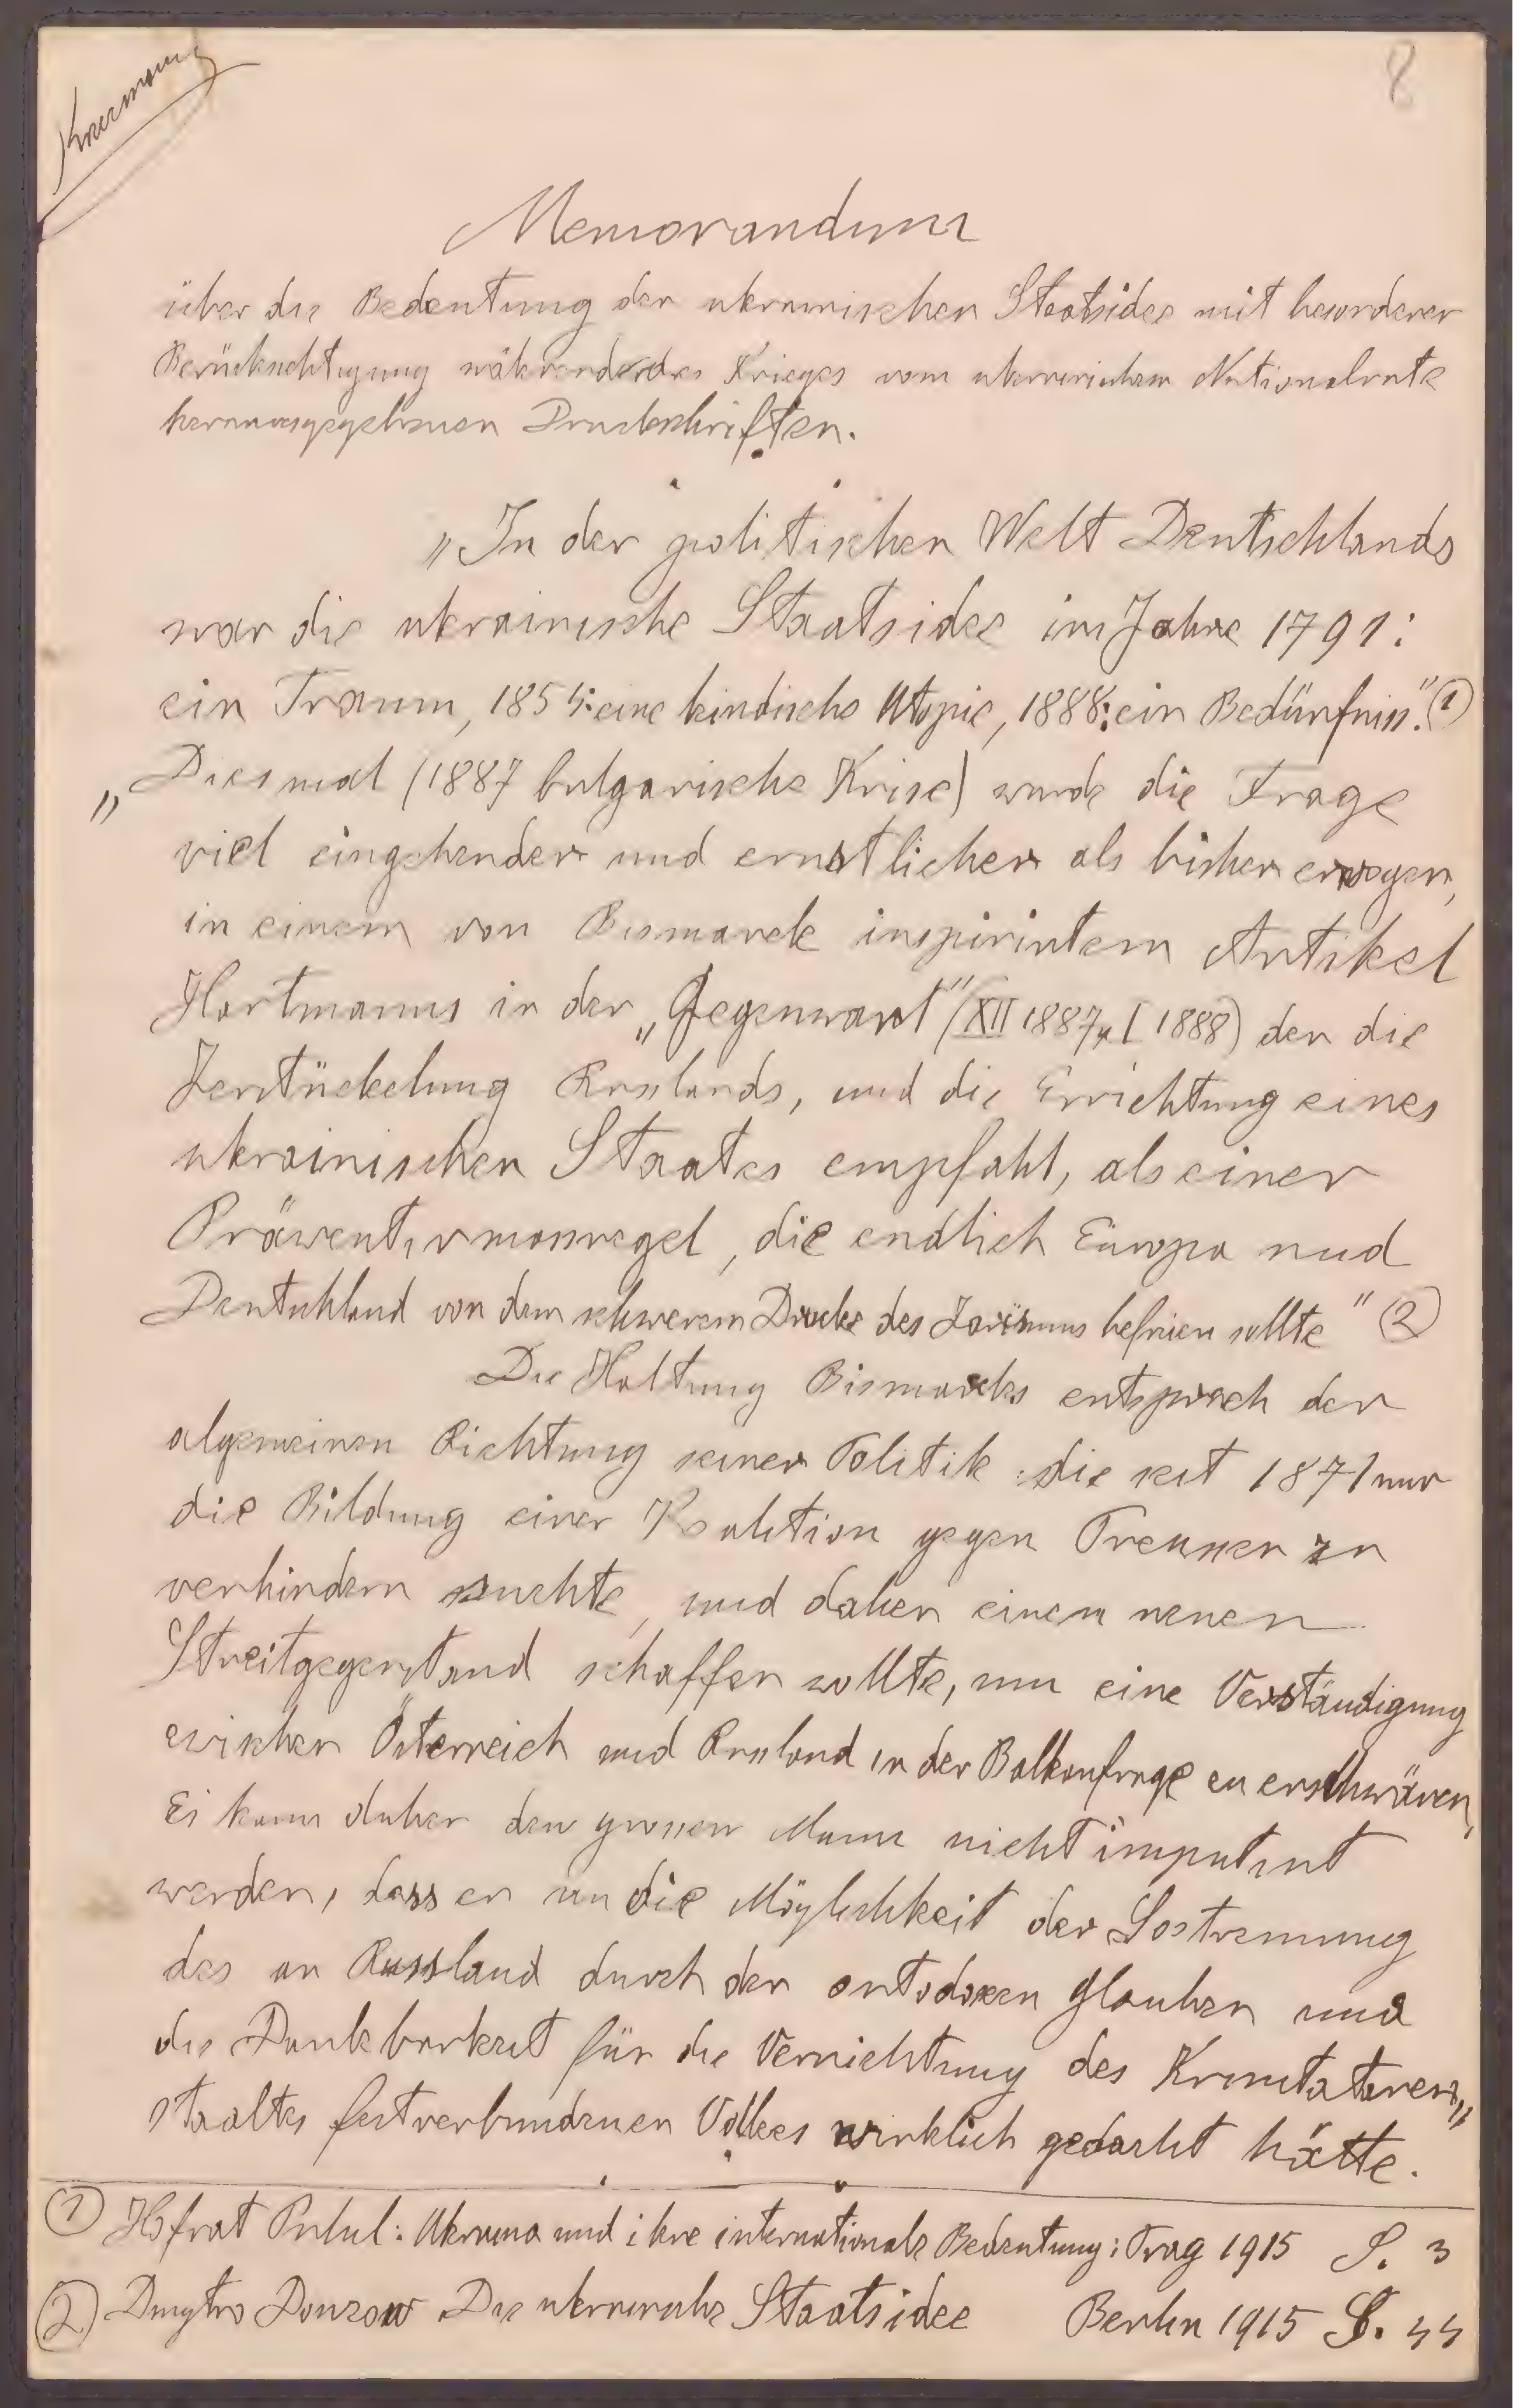 8
Memorandum
über die Bedeutung der ukrainischen Staatsidee mit besonderer
Berücksichtigung während des Krieges vom ukrainischen Nationalrate
herausgegebenen Druckschriften.
„In der politischen Welt Deutschlands
war die ukrainische Staatsidee im Jahre 1791:
ein Traum, 1854: eine kindische Utopie, 1888: ein Bedürfniss". (1)
„Diesmal (1887 bulgarische Krise) wurde die Frage
viel eingehender und ernstlicher als bisher erwogen,
in einem von Bismarck inspirirtem Artikel
Hartmanns in der „Gegenwart" (XII 1887, I 1888) der die
Zerstückelung Russlands, und die Errichtung eines
ukrainischen Staates empfahl, als einer
Präwentivmassregel, die endlich Europa und
Deutschland von dem schwerem Drucke des Zarismus befreien sollte" (2)
Die Haltung Bismarcks entsprach der
algemeinen Richtung seiner Politik die seit 1871 nur
die Bildung einer Koalition gegen Preussen zu
verhindern suchte, und daher einem neuen
Streitgegenstand schaffen wollte, um eine Verständigung
zwischen Österreich und Russland in der Balkanfrage zu erschwären,
Es kann daher dem grossen Mann nicht imputirt
werden, dass er an die Möglichkeit der Lostrennung
des an Russland durch den ortodoxen Glauben und
die Dankbarkeit für die Vernichtung des Krimtataren„
staates festverbundenen Volkes wirklich gedacht hätte.
(1) Hofrat : Ukraina und ihre internationale Bedeutung; Prag 1915 S. 3
(2) Dmytro Donzow Die ukrainische Staatsidee Berlin 1915 S. 44